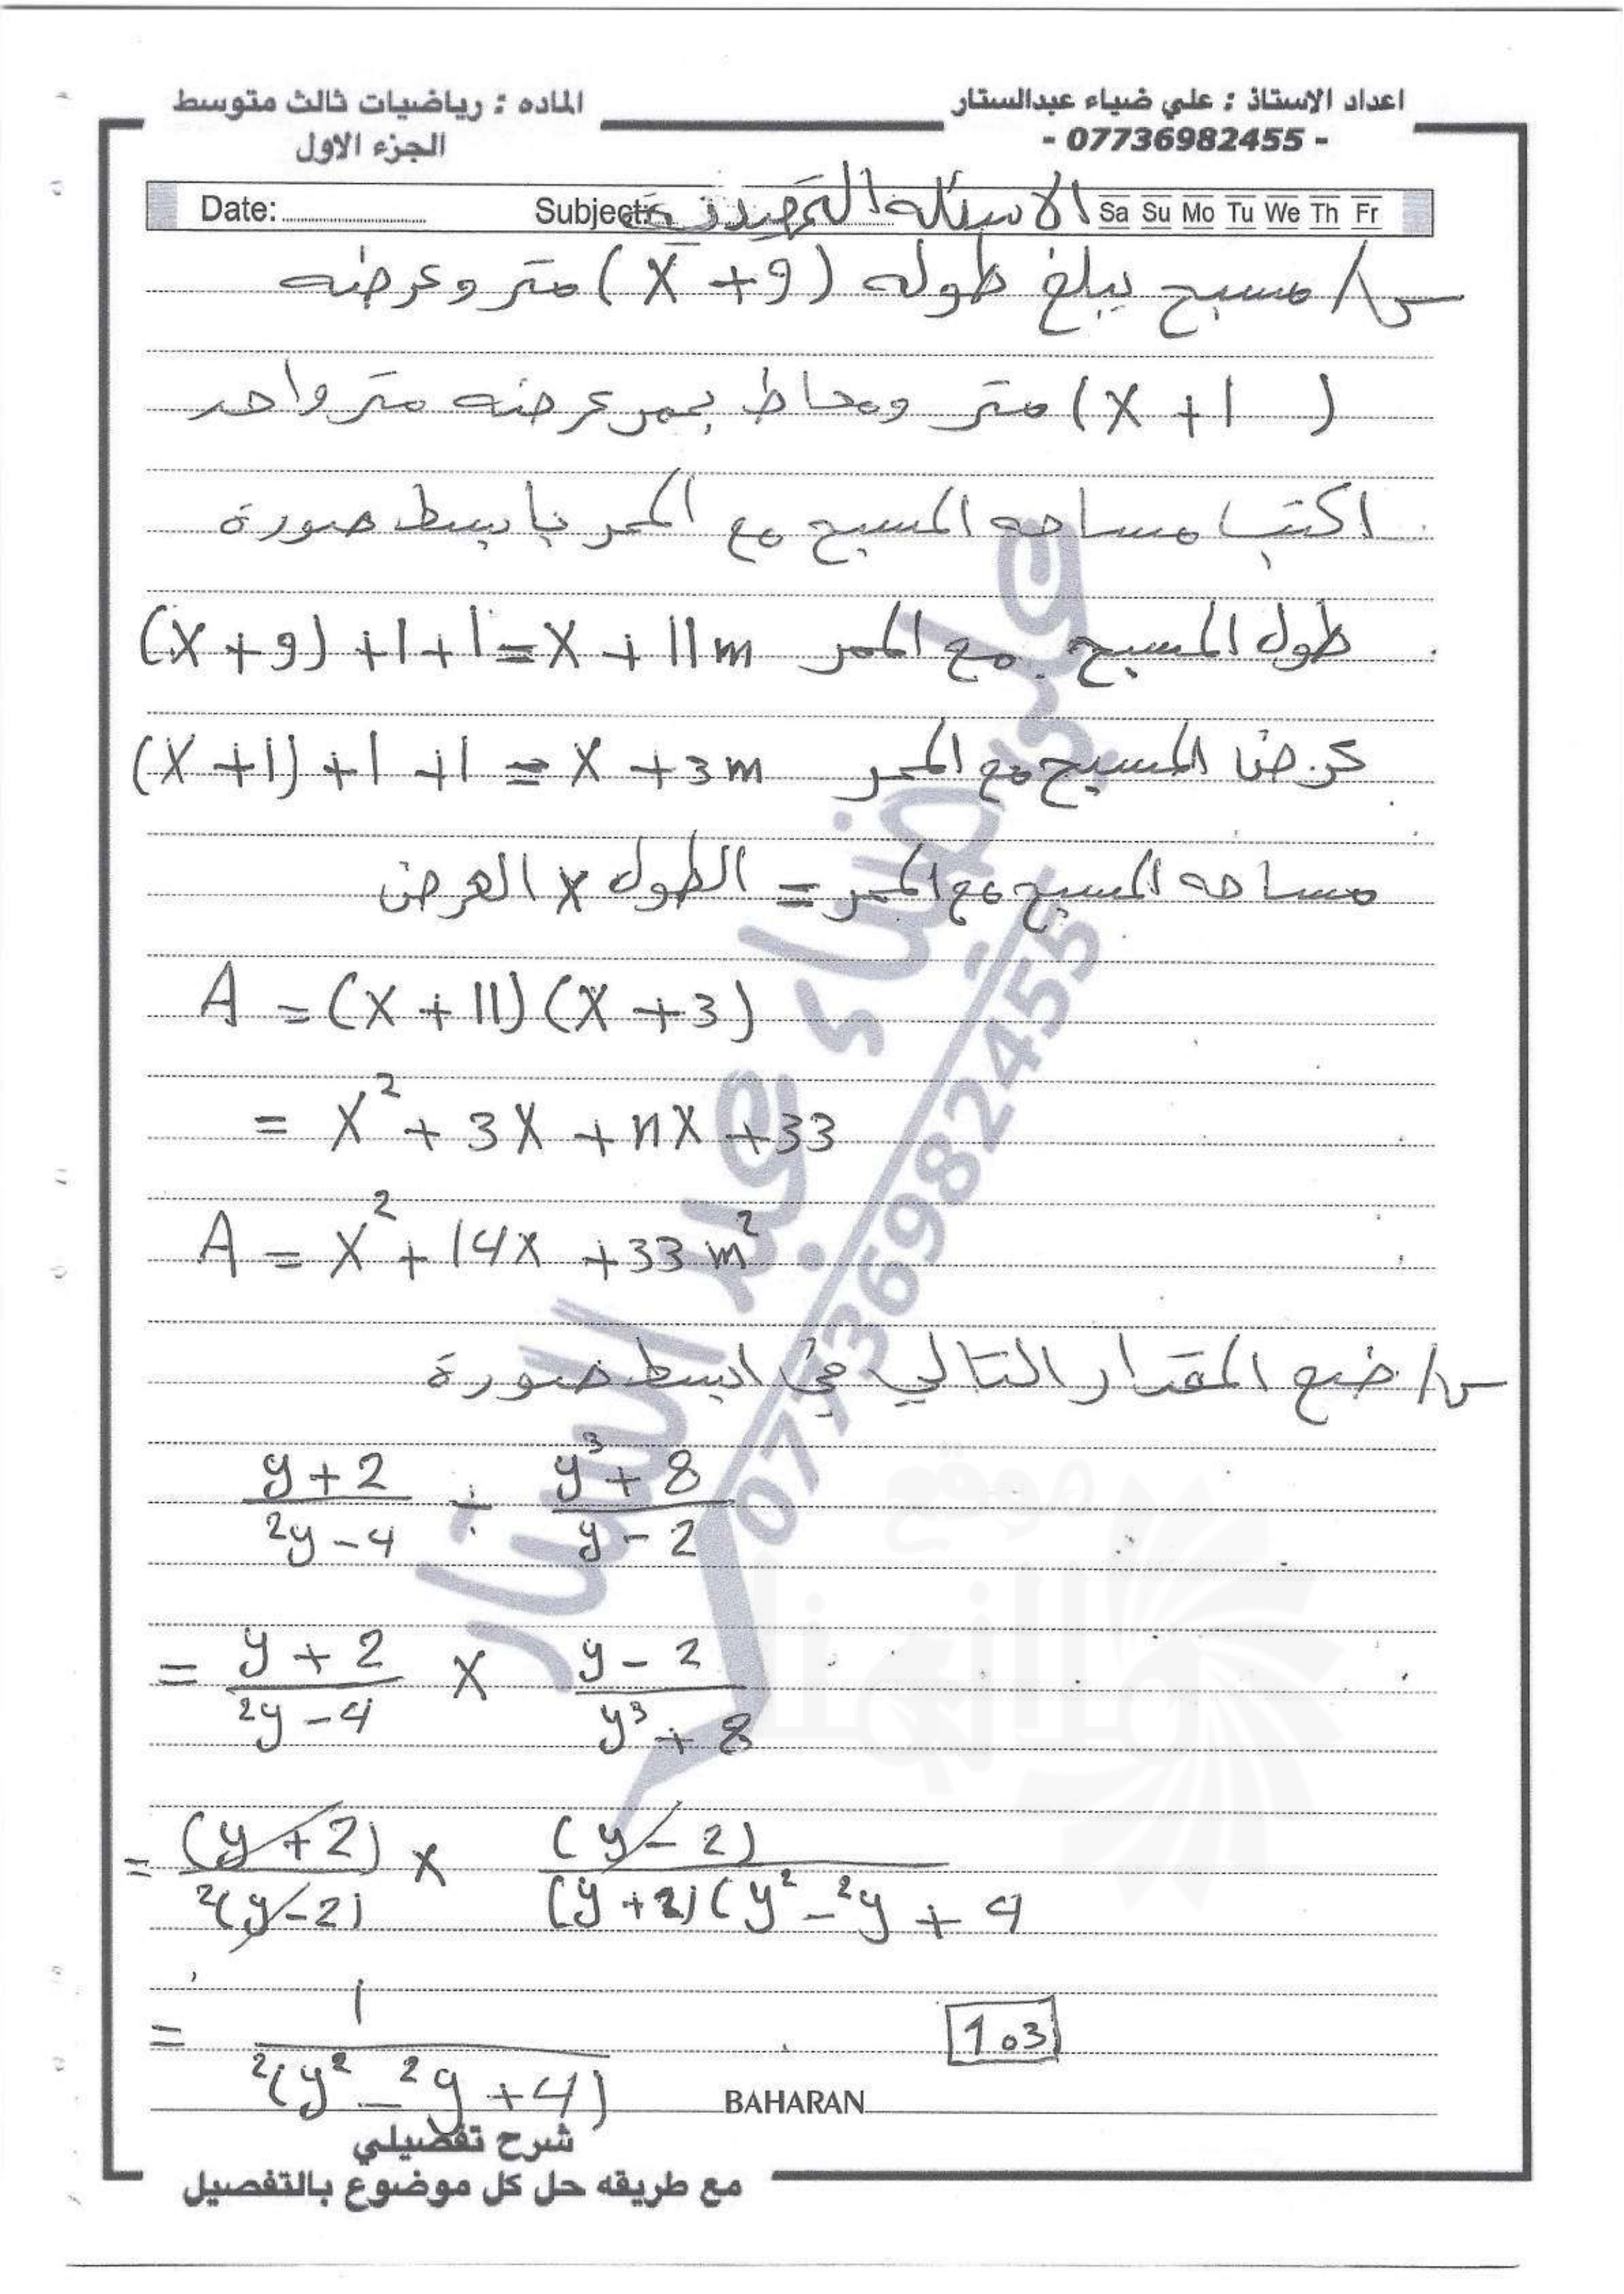 اعداد الاستاذ : علي ضياء عبدالستار
- 07736982455 -
الماده : رياضيات ثالث متوسط
الجزء الاول
Date: Subject: الاسئله التمهيدية Sa Su Mo Tu We Th Fr
س/ مسبح يبلغ طوله (x + 9) متر وعرضه
(x + 1) متر ومحاط بممر عرضه متر واحد
اكتب مساحه المسبح مع الممر بابسط صورة
طول المسبح مع الممر (x + 9) + 1 + 1 = x + 11 m
عرض المسبح مع الممر (x + 1) + 1 + 1 = x + 3 m
مساحه المسبح مع الممر = الطول x العرض
A = (x + 11) (x + 3)
= x² + 3x + 11x + 33
A = x² + 14x + 33 m²
س/ ضع المقدار التالي في ابسط صورة
y + 2 / 2y - 4 ÷ y³ + 8 / y - 2
= y + 2 / 2y - 4 x y - 2 / y³ + 8
= (y + 2) / 2(y - 2) x (y - 2) / (y + 2) (y² - 2y + 4
= 1 / 2(y² - 2y + 4)
103
BAHARAN
شرح تفصيلي
مع طريقه حل كل موضوع بالتفصيل
علي ضياء عبد الستار
07736982455
موقع